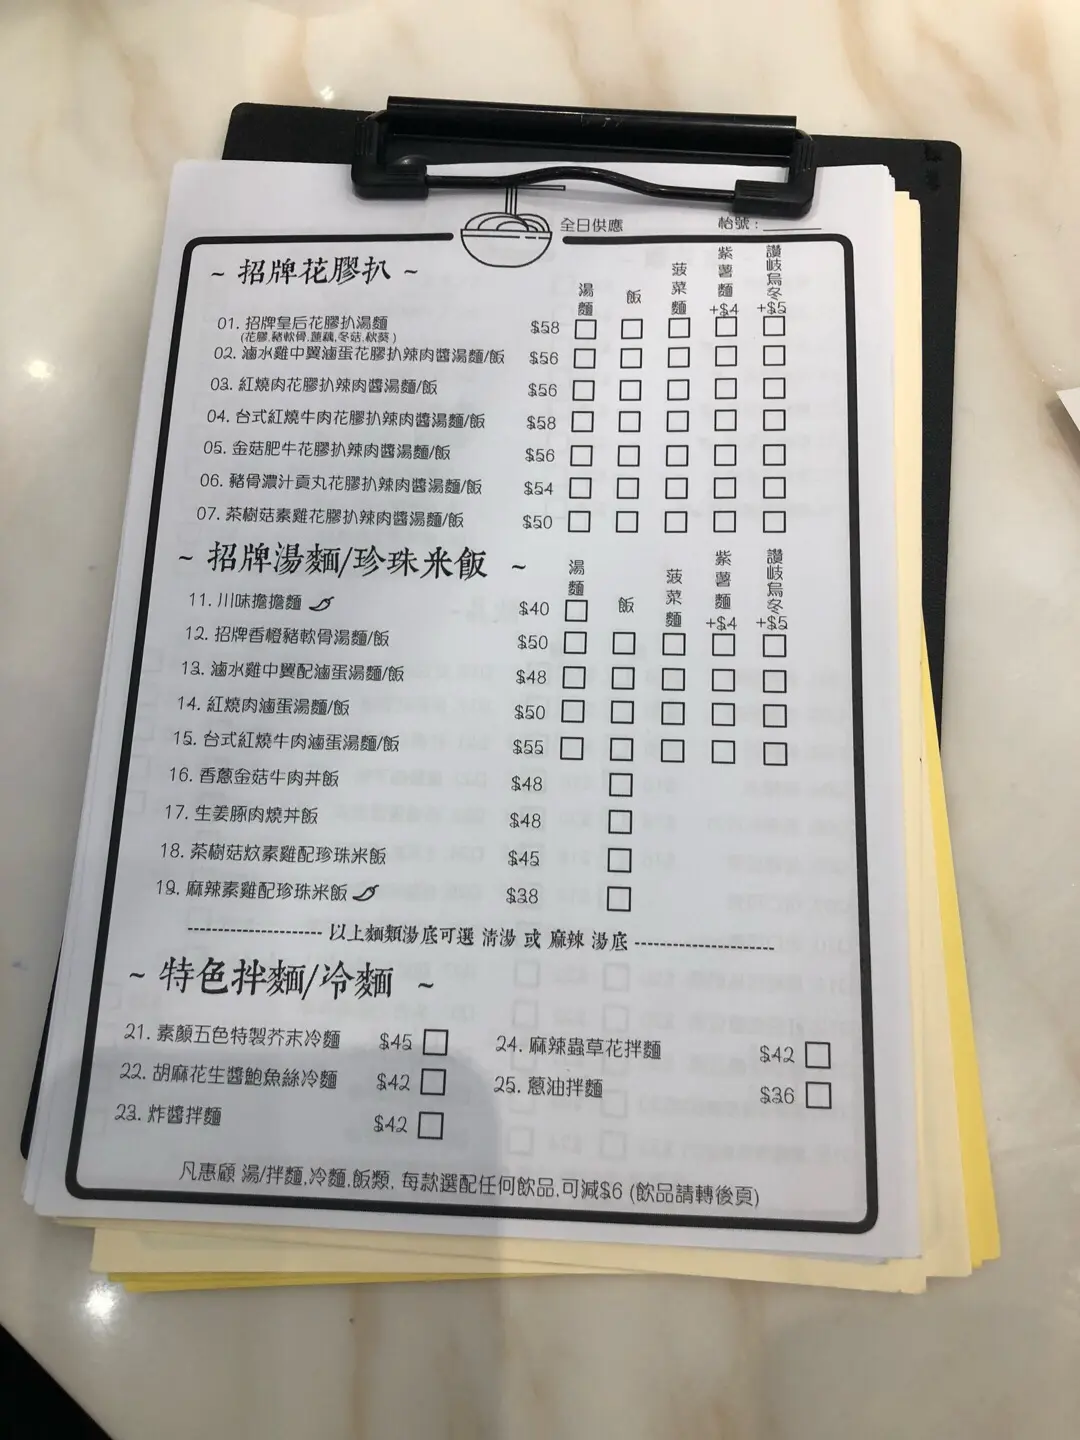 全日供應 枱號：
~ 招牌花膠扒 ~ 湯麵 飯 菠菜麵 紫薯麵+$4 讚岐烏冬+$5
01. 招牌皇后花膠扒湯麵 $58
(花膠,豬軟骨,蓮藕,冬菇,秋葵)
02. 滷水雞中翼滷蛋花膠扒辣肉醬湯麵/飯 $56
03. 紅燒肉花膠扒辣肉醬湯麵/飯 $56
04. 台式紅燒牛肉花膠扒辣肉醬湯麵/飯 $58
05. 金菇肥牛花膠扒辣肉醬湯麵/飯 $56
06. 豬骨濃汁貢丸花膠扒辣肉醬湯麵/飯 $54
07. 茶樹菇素雞花膠扒辣肉醬湯麵/飯 $50
~ 招牌湯麵/珍珠米飯 ~ 湯麵 飯 菠菜麵 紫薯麵+$4 讚岐烏冬+$5
11. 川味擔擔麵 $40
12. 招牌香橙豬軟骨湯麵/飯 $50
13. 滷水雞中翼配滷蛋湯麵/飯 $48
14. 紅燒肉滷蛋湯麵/飯 $50
15. 台式紅燒牛肉滷蛋湯麵/飯 $55
16. 香蔥金菇牛肉丼飯 $48
17. 生姜豚肉燒丼飯 $48
18. 茶樹菇炆素雞配珍珠米飯 $45
19. 麻辣素雞配珍珠米飯 $38
以上麵類湯底可選 清湯 或 麻辣 湯底
~ 特色拌麵/冷麵 ~
21. 素顏五色特製芥末冷麵 $45
22. 胡麻花生醬鮑魚絲冷麵 $42
23. 炸醬拌麵 $42
24. 麻辣蟲草花拌麵 $42
25. 蔥油拌麵 $36
凡惠顧 湯/拌麵,冷麵,飯類, 每款選配任何飲品,可減$6 (飲品請轉後頁)